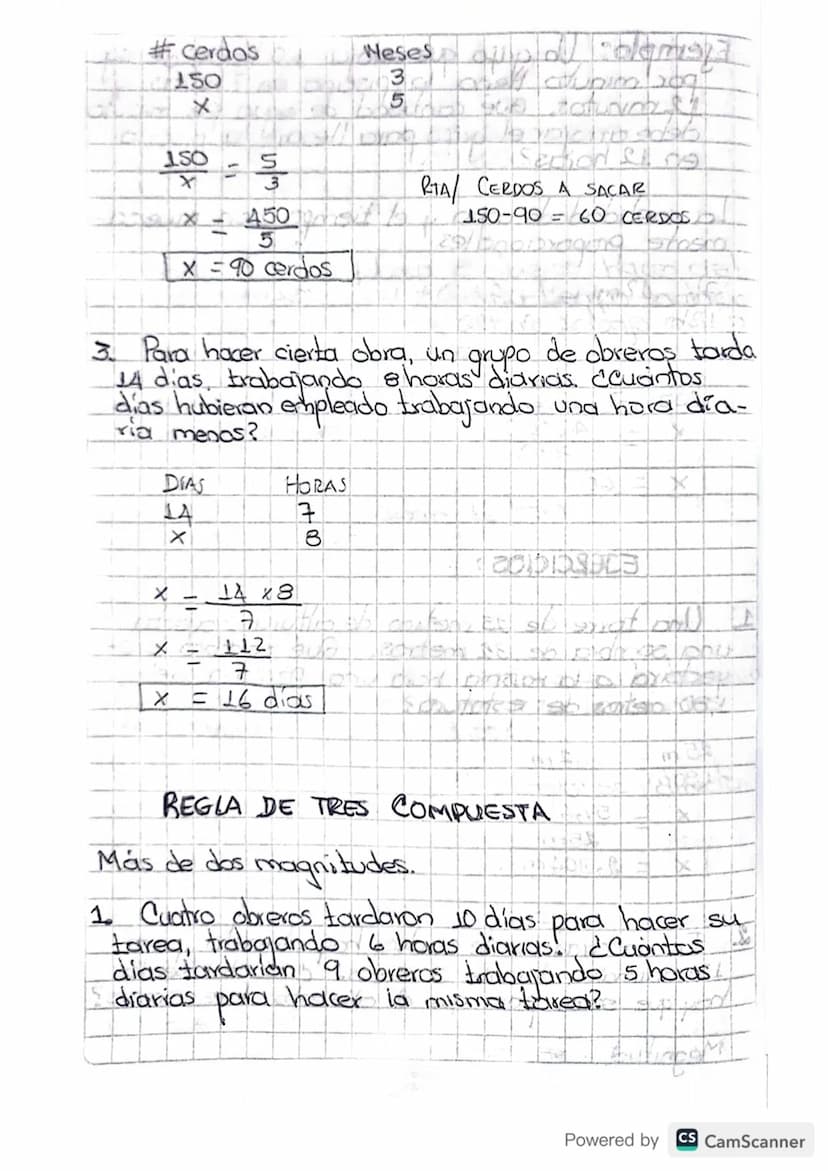 # cerdos Meses
150 3
x 5
150/x = 5/3
x = 450/5
x = 90 cerdos
RTA/ CERDOS A SACAR
150-90 = 60 CERDOS
3. Para hacer cierta obra, un grupo de obreros tarda
14 días, trabajando 8 horas diarias. ¿Cuántos
días hubieran empleado trabajando una hora dia-
ria menos?
DÍAS HORAS
14 7
x 8
x = 14 x 8/7
x = 112/7
x = 16 días
REGLA DE TRES COMPUESTA
Más de dos magnitudes.
1. Cuatro obreros tardaron 10 días para hacer su
tarea, trabajando 6 horas diarias. ¿Cuántos
días tardarían 9 obreros trabajando 5 horas
diarias para hacer la misma tarea?
Powered by CS CamScanner